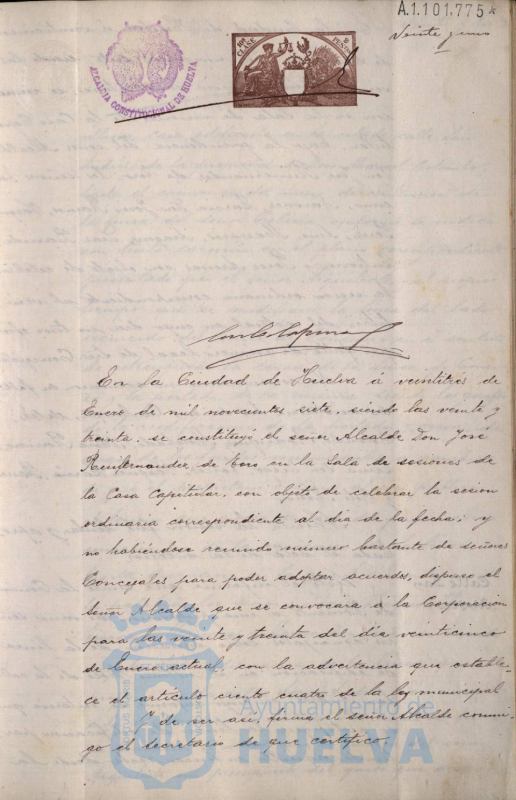 A.1.101.775*
ALCALDIA CONSTITUCIONAL DE HUELVA
10ª CLASE
2 PESETAS
En la Ciudad de Huelva á veintitrés de
Enero de mil novecientos siete, siendo las veinte y
treinta, se constituyó el señor Alcalde Don José
de Toro en la Sala de sesiones de
la Casa Capitular, con objeto de celebrar la sesion
ordinaria correspondiente al dia de la fecha; y
no habiéndose reunido número bastante de señores
Concejales para poder adoptar acuerdos, dispuso el
Señor Alcalde que se convocara á la Corporacion
para las veinte y treinta del día veinticinco
de Enero actual, con la advertencia que estable-
ce el artículo ciento cuatro de la ley municipal
Y de ser asi, firma el señor Alcalde conmi-
go el Secretario de que certifico.
Ayuntamiento de
HUELVA